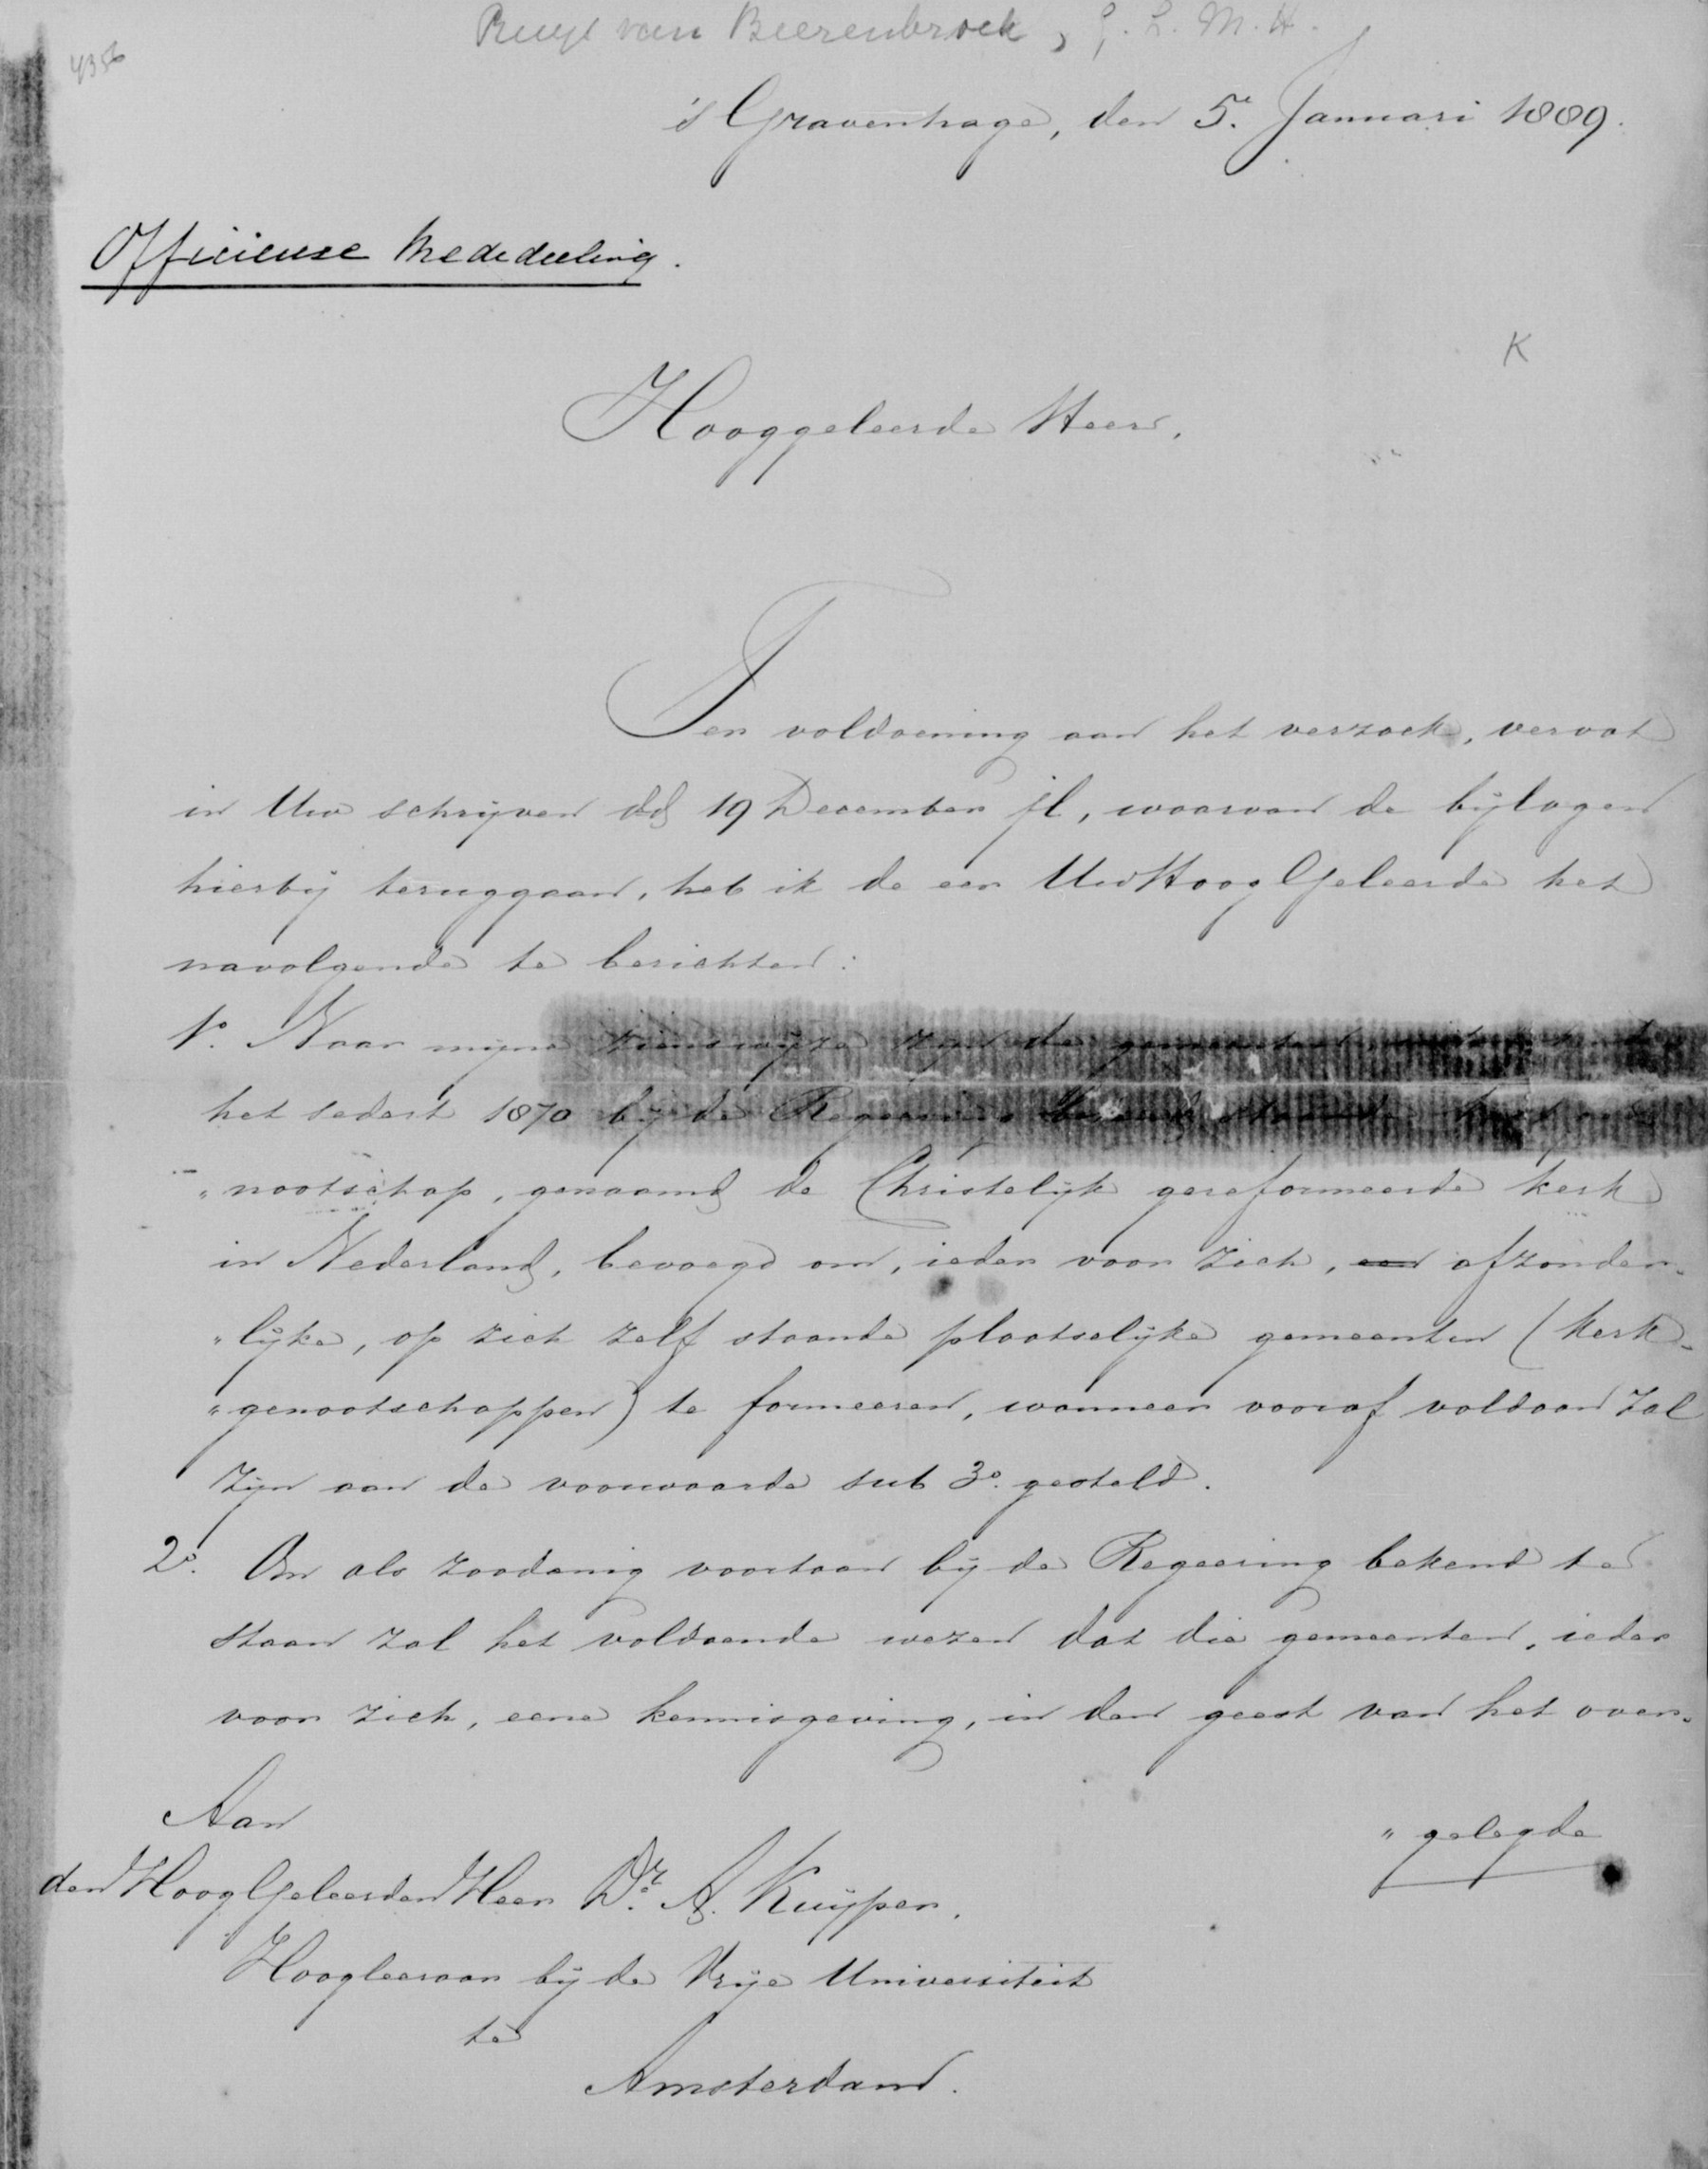 Ruys van Beerenbroek, G. L. M. H.
4356
's Gravenhage, den 5. Januari 1889.
Officieuse Mededeeling.
K
Hooggeleerde Heer,
Ten voldoening aan het verzoek, vervat
in Uw schrijven dd 19 December jl, waarvan de bijlagen
hierbij teruggaan, heb ik de eer UwHoogGeleerde het
navolgende te berichten:
1o. Naar mijne zienswijze zijn de gemeenten
het sedert 1870 bij de Regeering bekend staande
"nootschap, genaamd de Christelijk gereformeerde kerk
in Nederland, bevoegd om, ieder voor zich, een afzonder-
"lijke, op zich zelf staande plaatselijke gemeenten (kerk-
"genootschappen) te formeeren, wanneer vooraf voldaan zal
zijn aan de voorwaarde sub 3o. gesteld.
2o. Om als zoodanig voortaan bij de Regeering bekend te
staan zal het voldoende wezen dat die gemeenten, ieder
voor zich, eene kennisgeving, in den geest van het over-
"gelegde
Aan
den HoogGeleerden Heer Dr. A. Kuijper,
Hoogleeraar bij de Vrije Universiteit
te
Amsterdam.